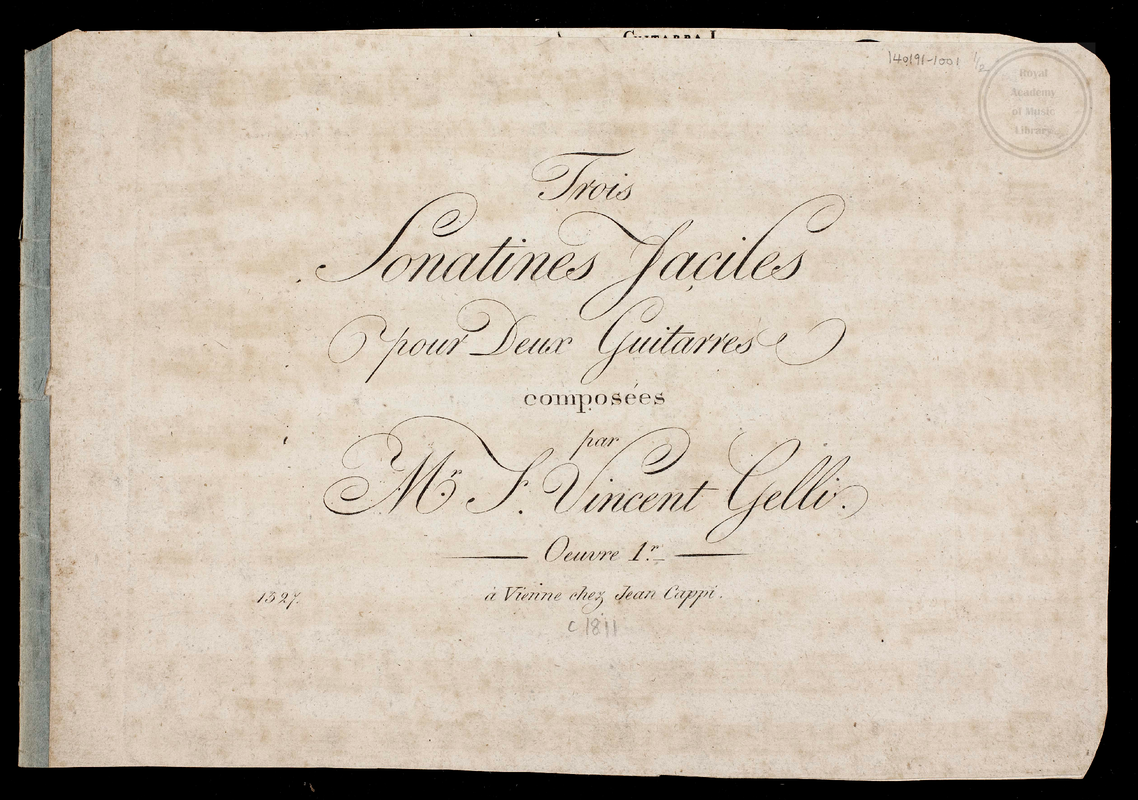 GUITARRA I.
140191-1001 1/2
Royal
Academy
of Music
Library
Trois
Sonatines Façiles
pour Deux Guitarres
composées
par
Mr. F. Vincent Gelli.
Oeuvre 1.r
à Vienne chez Jean Cappi.
1327.
c 1811